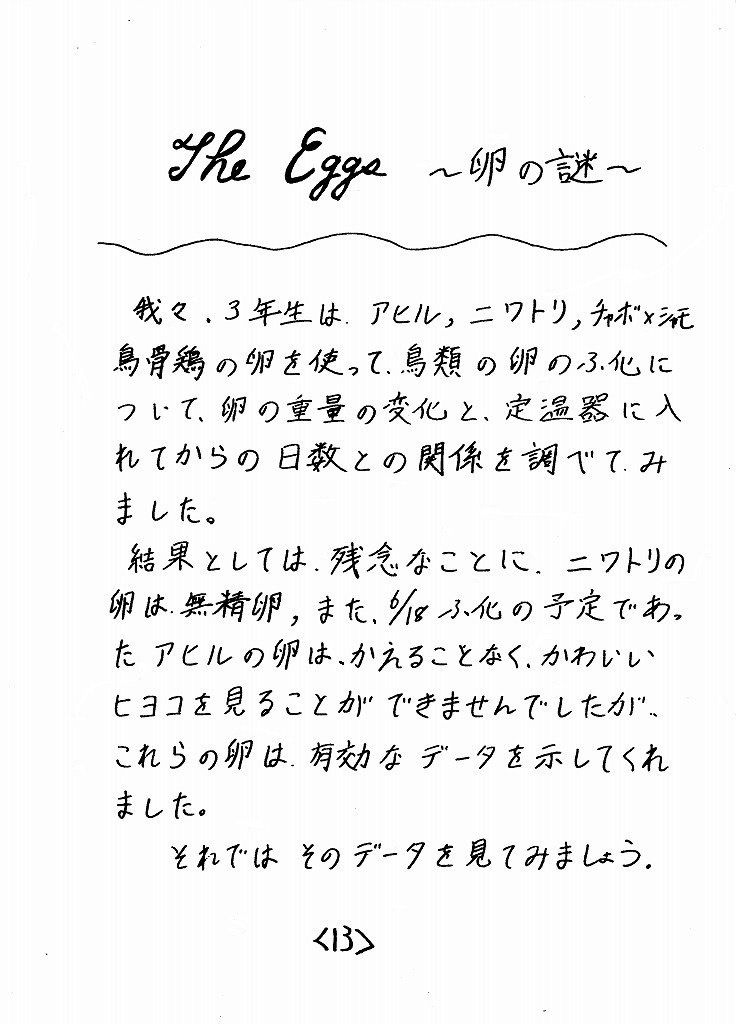 The Eggs 〜卵の謎〜
我々、3年生は、アヒル，ニワトリ，チャボ×シャモ
鳥骨鶏の卵を使って、鳥類の卵のふ化に
ついて、卵の重量の変化と、定温器に入
れてからの日数との関係を調べて、み
ました。
結果としては、残念なことに、ニワトリの
卵は、無精卵，また、6/18 ふ化の予定であっ
た アヒルの卵は、かえることなく、かわいい
ヒヨコを見ることが できませんでしたが、
これらの卵は、有効な データを示してくれ
ました。
それでは そのデータを見てみましょう．
<13>